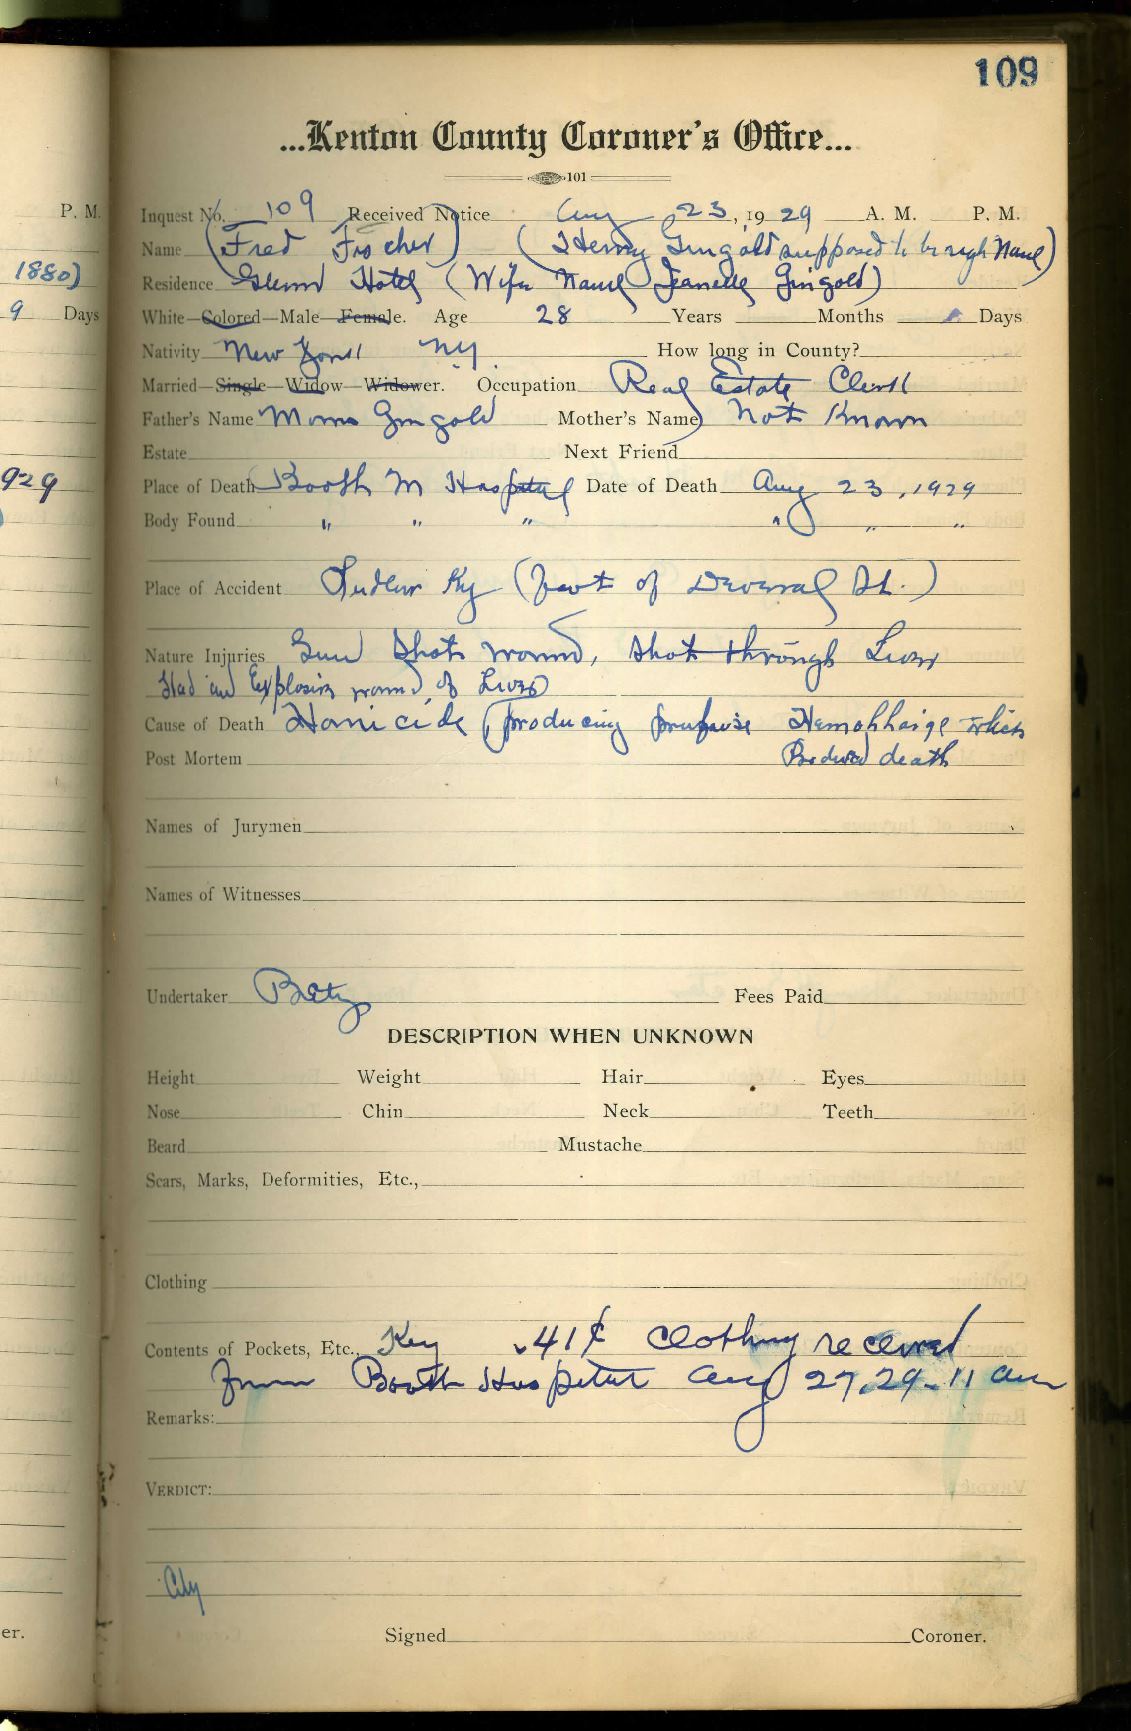 109
...Kenton County Coroner's Office...
101
P. M.
Inquest No. 109 Received Notice Aug 23, 1929 A. M. P. M.
Name (Fred Fischer) (Henry Gingold supposed to be right Name)
1880)
Residence Glenn Hotel (Wife Name Jeanette Gingold)
9 Days
White—Colored—Male—Female. Age 28 Years Months Days
Nativity New York NY. How long in County?
Married—Single—Widow—Widower. Occupation Real Estate Clerk
Father's Name Morris Gingold Mother's Name) Not Known
Estate Next Friend
929
Place of Death Booth M Hospital Date of Death Aug 23, 1929
Body Found " " " " " "
Place of Accident Ludlow Ky (foot of Deveral St.)
Nature Injuries Gun Shot wound, Shot through Liver
Had an Explosive wound of Liver)
Cause of Death Homicide (producing profuse Hemohhaige which
Post Mortem Produced death
Names of Jurymen
Names of Witnesses
Undertaker Betz Fees Paid
DESCRIPTION WHEN UNKNOWN
Height Weight Hair Eyes
Nose Chin Neck Teeth
Beard Mustache
Scars, Marks, Deformities, Etc.,
Clothing
Contents of Pockets, Etc., Key .41¢ Clothing received
from Booth Hospital Aug 27, 29 - 11 am
Remarks:
VERDICT:
City
er.
Signed Coroner.